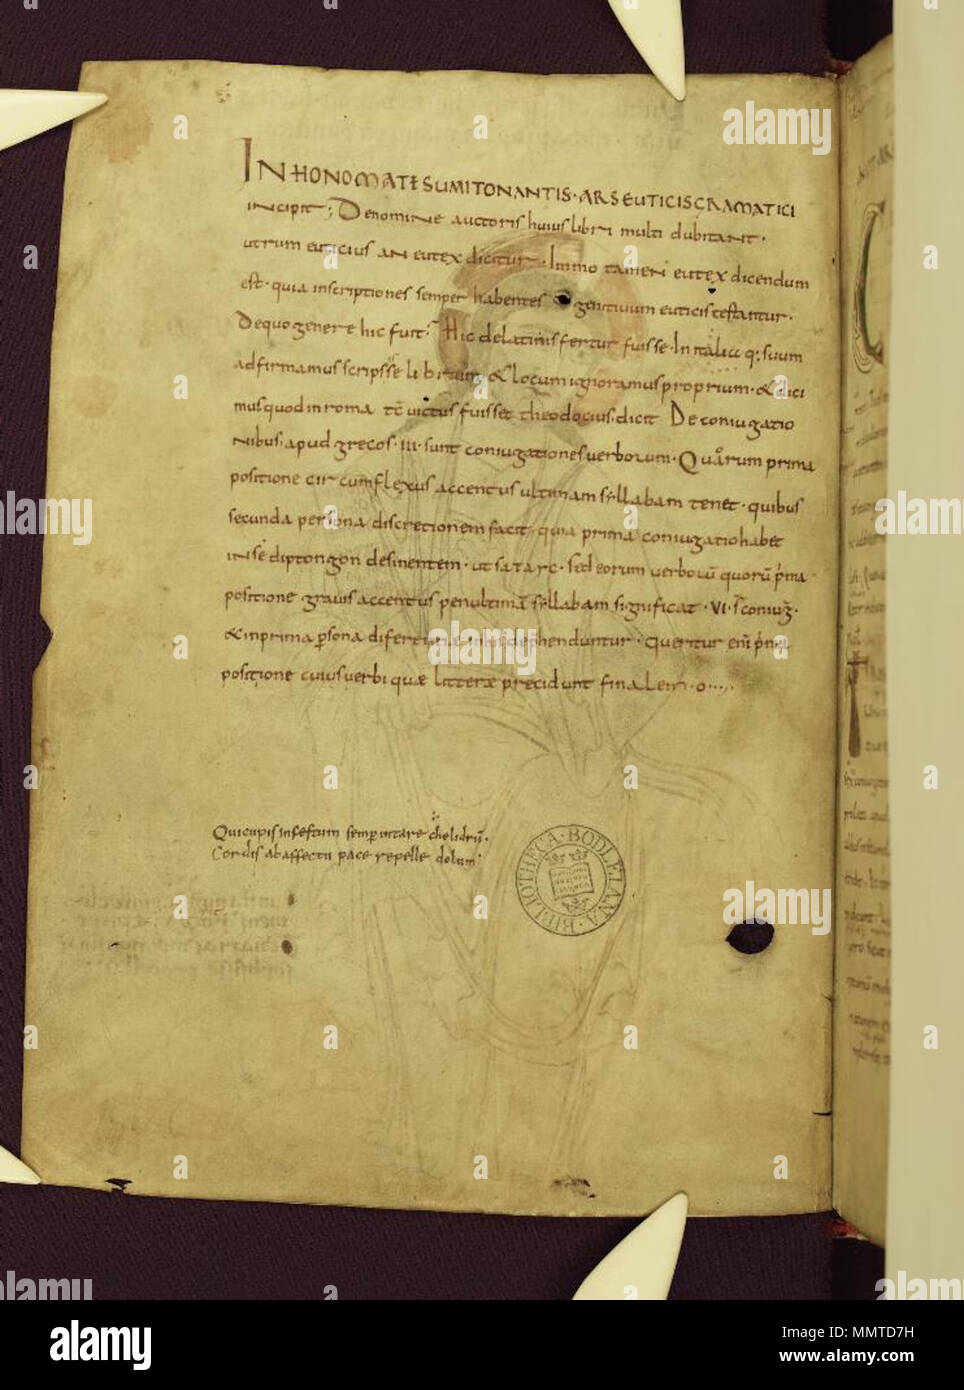 IN HONOMATE SUMI TONANTIS · ARS EUTICIS GRAMATICI
incipit; De nomine auctoris huius libri multi dubitant ·
utrum euticius an eutex dicitur · Immo tamen eutex dicendum
est · quia inscriptiones semper habentes gentiuum euticis testantur ·
De quo genere hic fuit? Hic de latinis fertur fuisse · In italia q; suum
adfirmamus scripsse librum & locum ignoramus proprium · & dici
mus quod in roma tc̄ uictus fuisset theodocius dicit De coniugatio
nibus · apud grecos · III · sunt coniugationes uerborum · Quarum prima
positione circumflexus accentus ultimam syllabam tenet · quibus
secunda persona discretionem facit · quia prima coniugatio habet
in se diptongon desinentem · ut · sed eorum uerborū quorū pima
positione grauis accentus penultimā syllabam significat · VI · s̄ coniuḡ
& in prima psona difere dephenduntur · Queritur eni
positione cuius uerbi quæ litteræ precidunt finalem · o
Quicupis infestum semp uitare chelidrū ·
Cordis ab affectu pace repelle dolum
BIBLIOTHECA · BODLEIANA ·
alamy
Image ID: MMTD7H
www.alamy.com